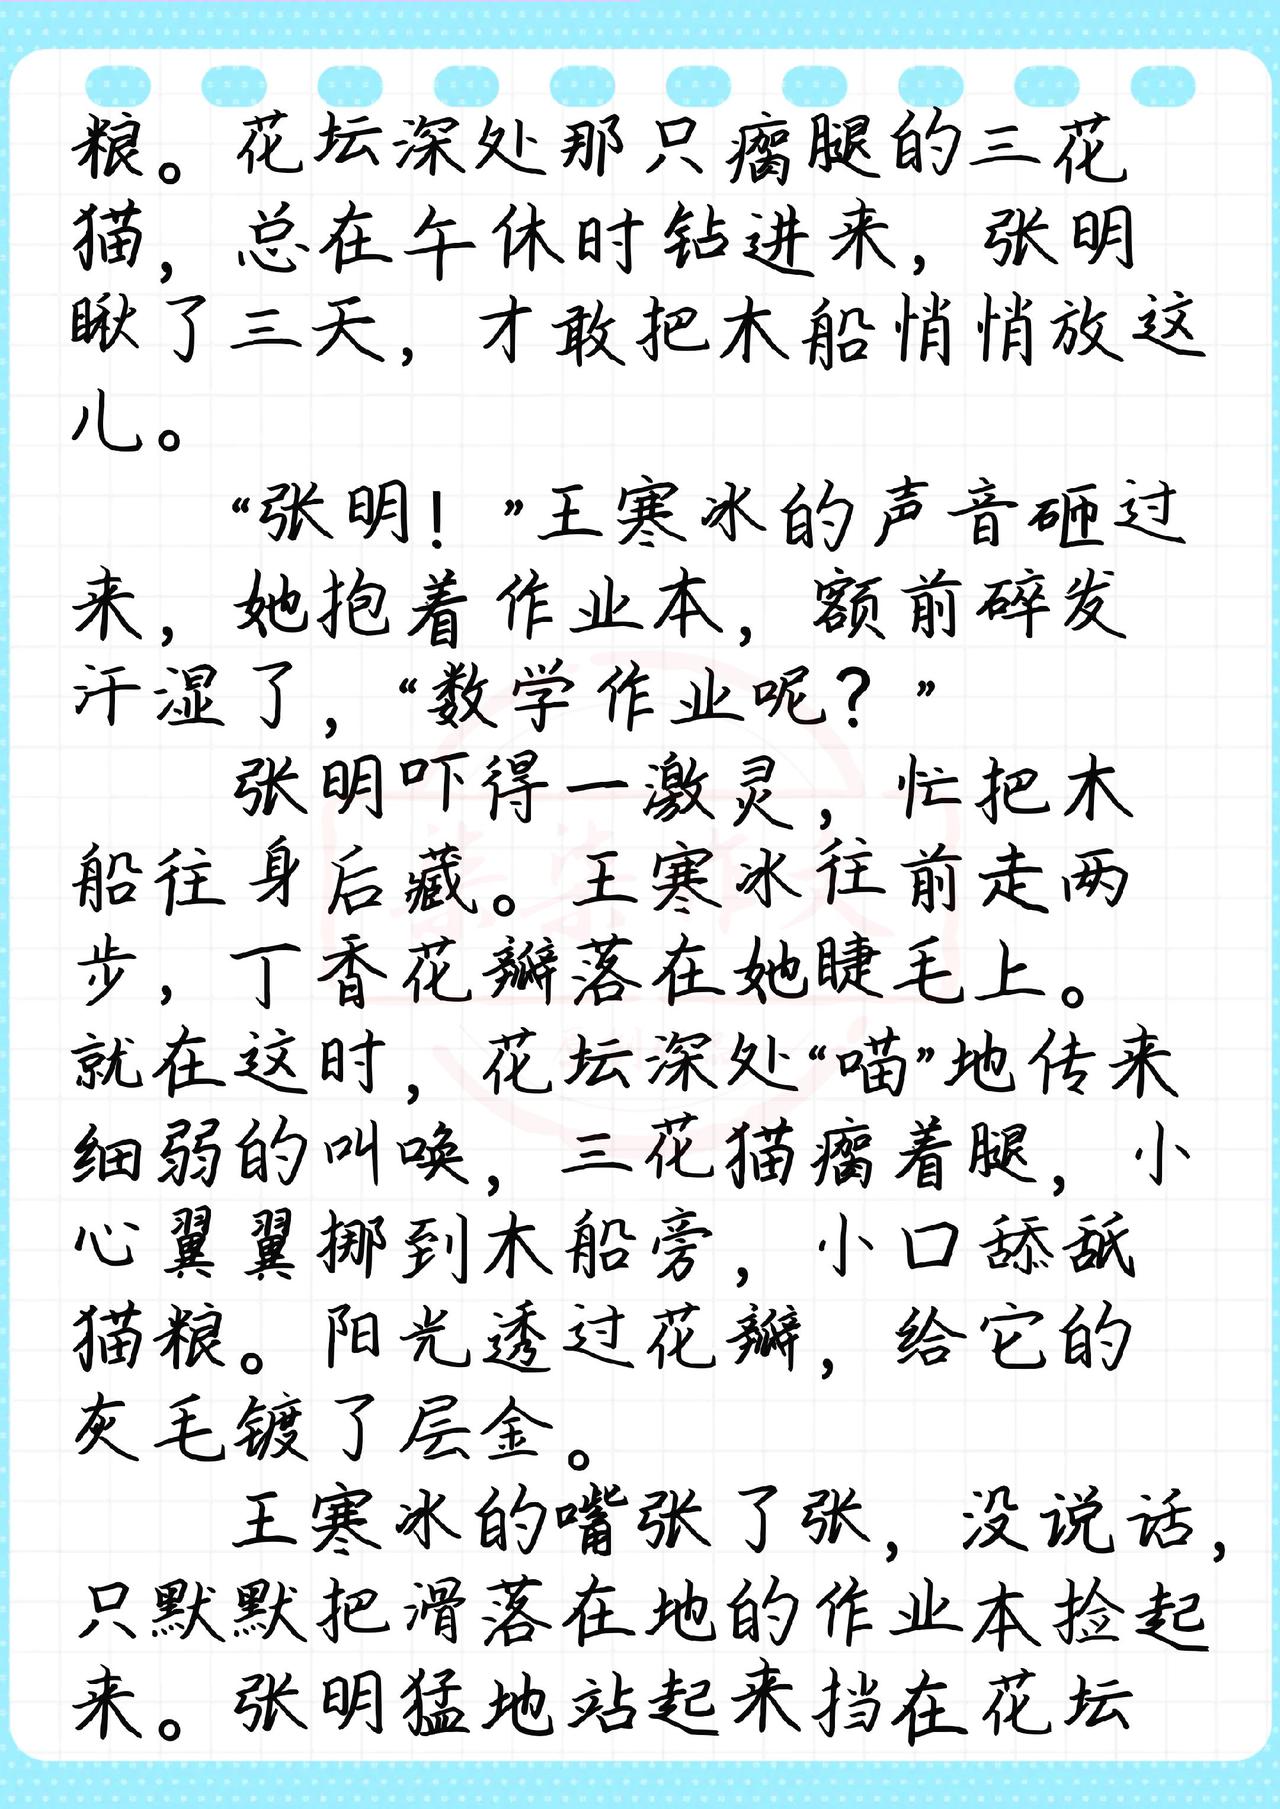 粮。花坛深处那只瘸腿的三花
猫，总在午休时钻进来，张明
瞅了三天，才敢把木船悄悄放这
儿。
“张明！”王寒冰的声音砸过
来，她抱着作业本，额前碎发
汗湿了，“数学作业呢？”
张明吓得一激灵，忙把木
船往身后藏。王寒冰往前走两
步，丁香花瓣落在她睫毛上。
就在这时，花坛深处“喵”地传来
细弱的叫唤，三花猫瘸着腿，小
心翼翼挪到木船旁，小口舔舐
猫粮。阳光透过花瓣，给它的
灰毛镀了层金。
王寒冰的嘴张了张，没说话，
只默默把滑落在地的作业本捡起
来。张明猛地站起来挡在花坛